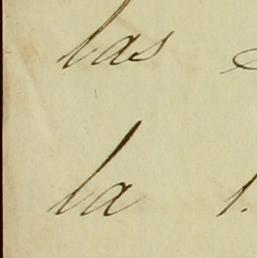 las
la 1.